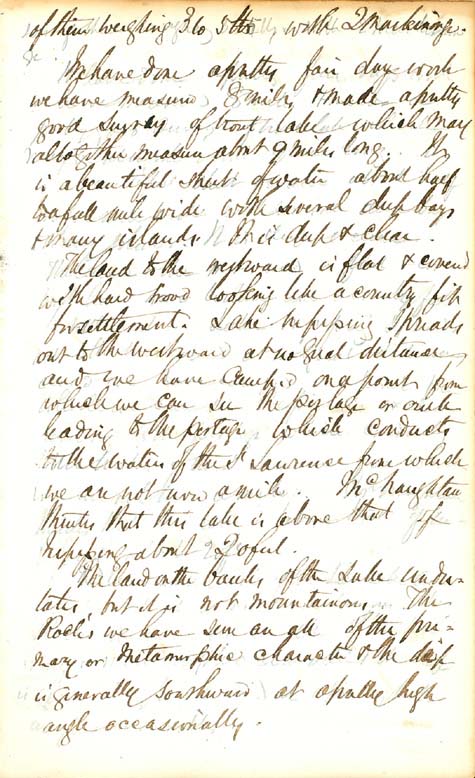 of them weighing 3 to 5 lbs with 2 Mackinings.
We have done a pretty fair days work
we have measured 8 miles & made a pretty
good survey of trout lake which may
altogether measure about 9 miles long. It
is a beautiful sheet of water about half
to a full mile wide with several deep bays
& many islands. It is deep & clear.
The land to the westward is flat & covered
with hard wood looking like a country fit
for settlement. Lake Nipissing spreads
out to the westward at no great distance
and we have camped on a point from
which we can see the portage or creek
leading to the portage which conducts
to the waters of the St Lawrence from which
we are not now a mile. McNaughtan
thinks that this lake is above that of
Nipissing about 20 feet.
The land on the banks of the Lake undu-
lates, but it is not mountainous. The
Rocks we have seen are all of the pri-
mary or Metamorphic character & the dip
is generally southward at a pretty high
angle occasionally.